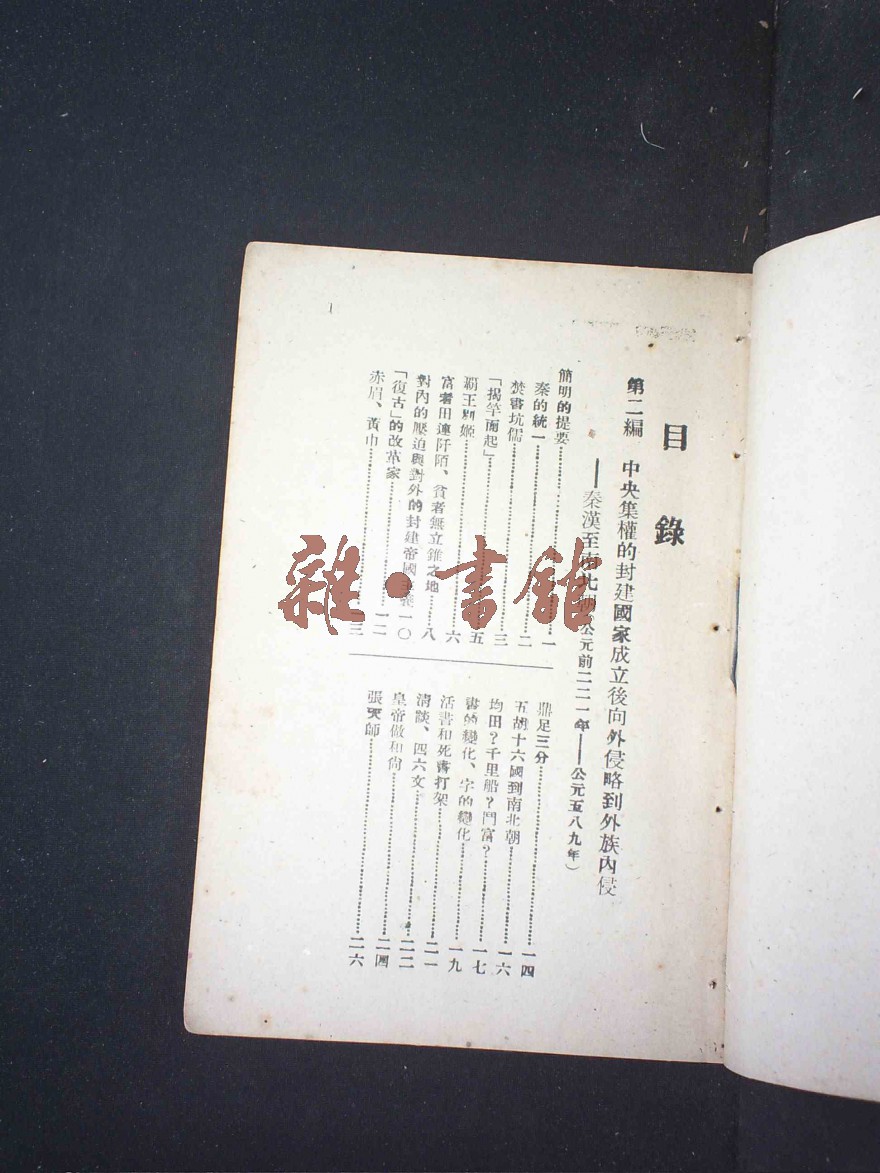 目錄
第二編　中央集權的封建國家成立後向外侵略到外族內侵
——秦漢至南北朝（公元前二二一年——公元五八九年）
簡明的提要……一
秦的統一……二
焚書坑儒……三
「揭竿而起」……五
霸王別姬……六
富者田連阡陌、貧者無立錐之地……八
對內的壓迫與對外的封建帝國主義……一〇
「復古」的改革家……一二
赤眉、黃巾……一三
鼎足三分……一四
五胡十六國到南北朝……一六
均田？千里船？鬥富？……一七
書的變化、字的變化……一九
活書和死書打架……二一
清談、四六文……二二
皇帝做和尚……二四
張天師……二六
1
雜·書館